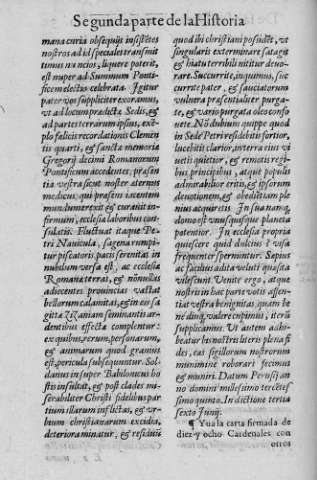 Segunda parte de la Historia
mana curia obsequijs insistẽtes
nostros ad id speciales transmit
timus nũncios, liquere poterit,
est nuper ad Summum Ponti-
ficem electio celebrata. Igitur
pater vos suppliciter exoramus,
vt ad locum prædictæ Sedis, &
ad partes terrarum ipsius, ext-
plo felicis recordationis Clemen
tis quarti, & sanctæ memoria
Gregorij decimi Romanorum
Pontificum accedentes, præsen
tia vestra sicut noster æternus
medicus, qui præstito iuxentem
mox hument ext & curatit in-
firmum, ecclesia laboribus con-
sulatis. Fluctuat itaque Pe-
tri Nauicula, sagena rumpi-
tur piscatoris pacis serenitas in
nubilum versa est, ac ecclesia
Romana terras, & nõnullas
adiacentes prouincias vastat
bellorum calamitas, & in eis sa
gitta Zizaniam seminantis ar-
dentibus effecta complentur:
ex quibus, rerum, personarum,
& animarum quod grauius
est, pericula subsequontur. Sol-
danus insuper Babilonicus ho
stis insultat, & post clades mi-
serabiliter Christi fidelibus par
tium illarum inflictas, & vr-
bium christianarum excidia,
deteriora minatur, & residui
quod ibi christiani possidẽt, vt
singularis exterminare satagit
& hiatu terribili nititur deuo-
rare. Succurrite, inquimus, suc
currite pater, & sauciatorum
vulnera præsentialiter purga-
te, & vario purgata oleo confo
uete. Nõ dubium quippe quod
in Sede Petri residebitis fortior,
lucebitis clarior, interra eius vi
uetis quietior, & remotis regi-
bus, principibus, atque populis
admirabilior eritis, & ipsorum
deuotionem, & obedientiam ple
nius acquiretis. In sua namq;
domo est vnusquisque planeta
potentior. In ecclesia propria
quiescere quid dulcius tuisa
frequenter spermintur. Sæpius
ac facilius adita veluti quasita
vilescunt. Venite ergo, atque
nostris in hac parte votis assen
tiat vestra benignitas, quam be
nedinq; videre cupimus, iterũ
supplicamus. Vt autem adhi-
beatur bis nostris literis plena fi
des, eas sigillorum nostrorum
munimine roborari fecimus
& muniri. Datum Perusij an-
no domini millesimo tercẽtes
simo quinto. In dictione tertia
sexto Junij.
¶ Yua la carta firmada de
diez y ocho Cardenales con
otros